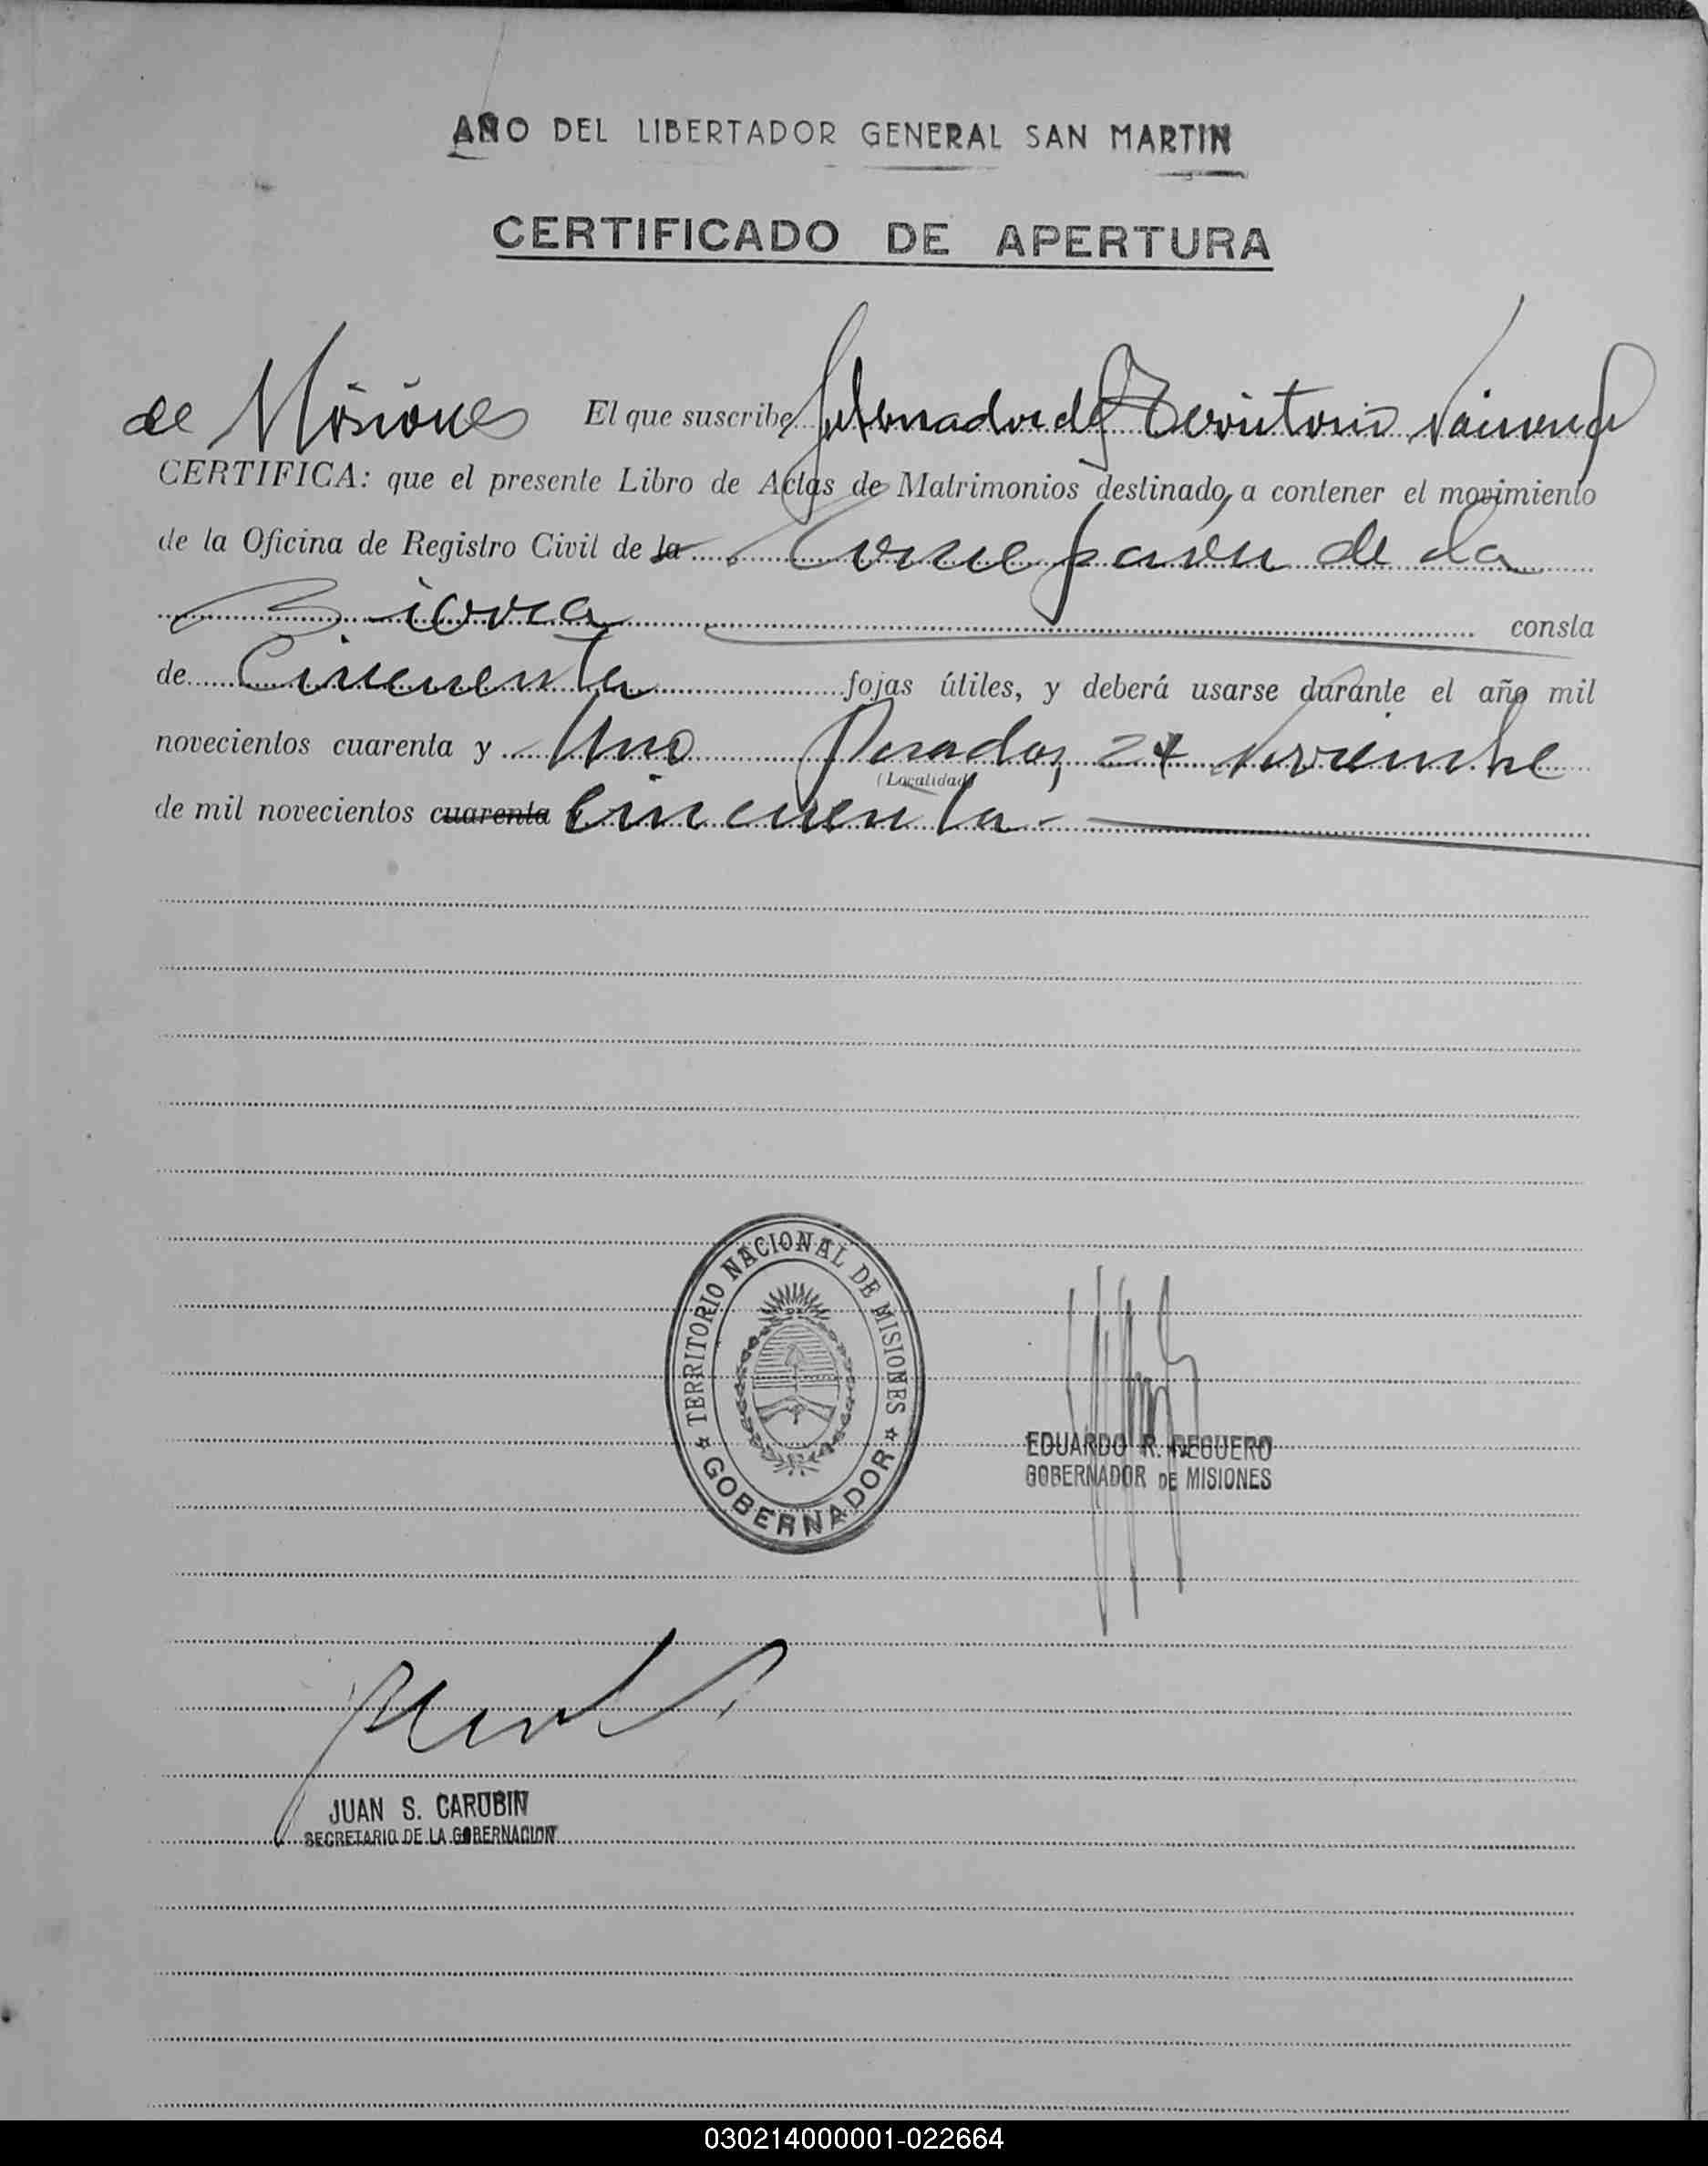 AÑO DEL LIBERTADOR GENERAL SAN MARTIN
CERTIFICADO DE APERTURA
de Misiones El que suscribe Gobernador del Territorio Nacional
CERTIFICA: que el presente Libro de Actas de Matrimonios destinado, a contener el movimiento
de la Oficina de Registro Civil de la Concepción de la
Sierra consta
de Cincuenta fojas útiles, y deberá usarse durante el año mil
novecientos cuarenta y Uno Posadas, 24 Noviembre
(Localidad)
de mil novecientos cuarenta Cincuenta
TERRITORIO NACIONAL DE MISIONES
GOBERNADOR
EDUARDO R. REGUERO
GOBERNADOR DE MISIONES
JUAN S. CARUBIN
SECRETARIO DE LA GOBERNACION
030214000001-022664